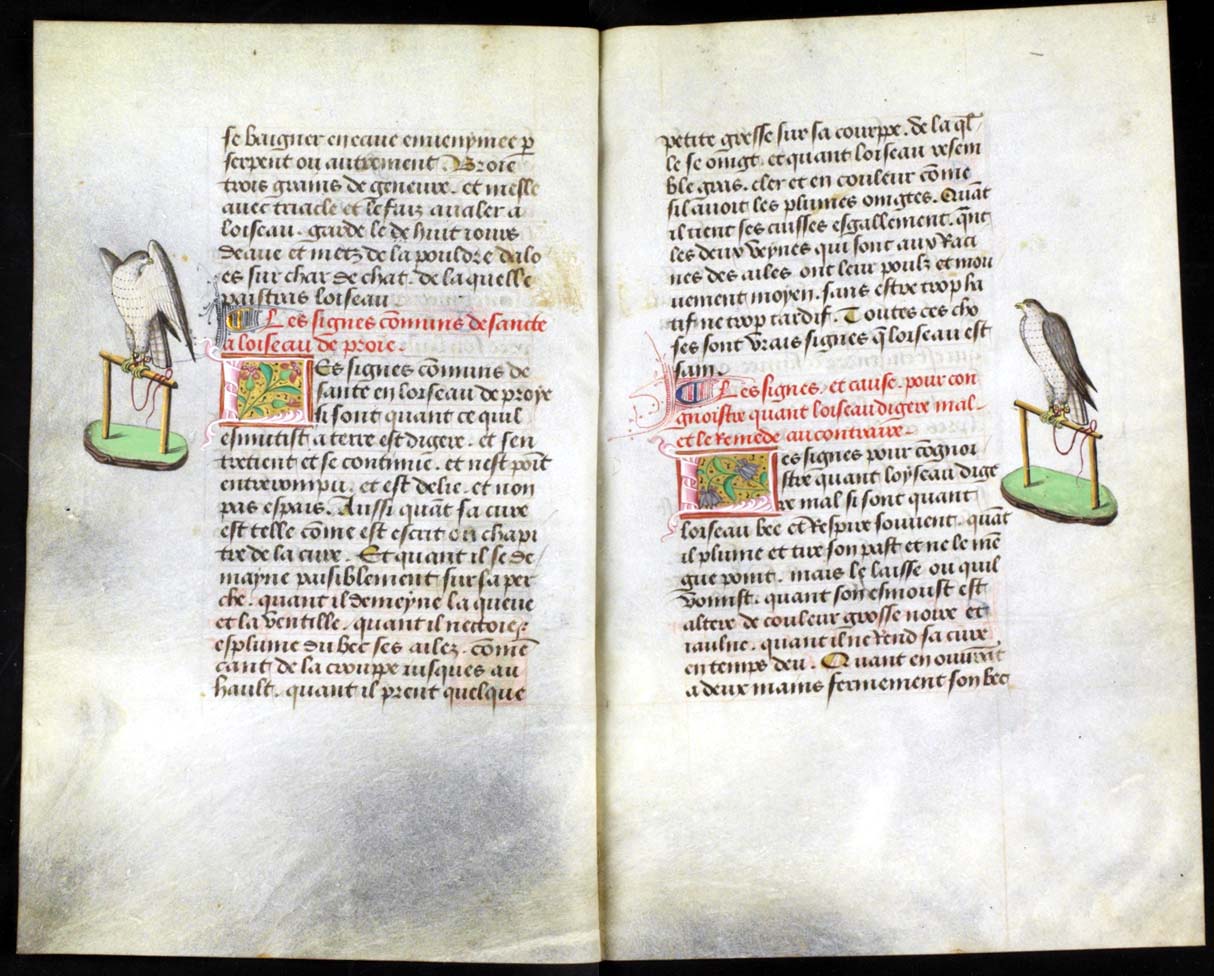 se baigner en eaue enuenymee p̱
serpent ou autrement. Broie
trois grains de geneure. et mesle
auec triacle et le faiz aualer a
loiseau. garde le de huit iours
deaue et metz de la pouldre dalo
es sur char de chat. de laquelle
paistras loiseau.
Les signes cōmuns de sante
a loiseau de proie.
LEs signes cōmuns de
sante en loiseau de proye
si sont quant ce quil
esmutist a terre est digere. et sen
tretient et se continue. et nest poīt
entrerompu. et est delie. et non
pas espais. Aussi quāt sa cure
est telle cōme est escrit ou chapi
tre de la cure. Et quant il se de
mayne paisiblement sur sa per
che. quant il demeyne la queue
et la ventille. quant il nectoie et
esplume du bec ses ailez. cōmē
cant de la crouppe iusques au
hault. quant il prent quelque
petite gresse sur sa courppe. de la ql̄
le se oingt. et quant loiseau resem
ble gras. cler et en couleur cōme
sil auoit les plumes oingtes. Quāt
il tient ses cuisses esgallement. q̄nt
les deux veynes qui sont aux Raci
nes des ailes ont leur poulz et mou
uement moyen. sans estre trop ha
tif ne trop tardif. Toutes ces cho
ses sont vrais signes q̄ loiseau est
sain.
Les signes. et cause. pour con
gnoistre quant loiseau digere mal.
et le Remede au contraire.
Les signes pour cognoi
stre quant loyseau dige
re mal si sont quant
loiseau bee et Respire souuent. quāt
il plume et tire son past et ne le mē
gue point. mais le laisse ou quil
vomist. quant son esmoust est
altere de couleur grosse noire et
iaulne. quant il ne Rend sa cure
en temps deu. Quant en ouurāt
a deux mains fermement son bec